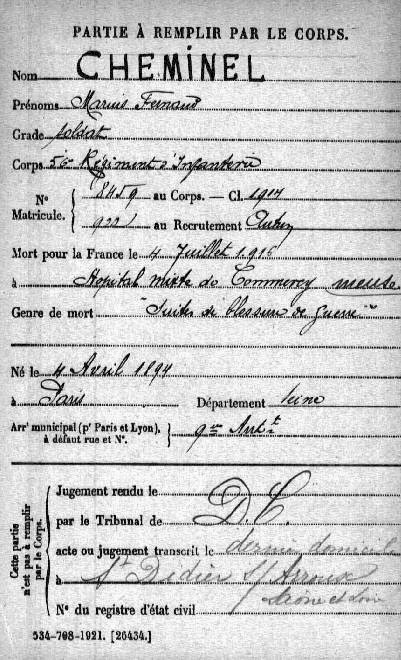 PARTIE À REMPLIR PAR LE CORPS.
Nom CHEMINEL
Prénoms Marius Fernand
Grade soldat
Corps 56e Régiment d'Infanterie
Nº Matricule. 8459 au Corps. — Cl. 1914
922 au Recrutement Autun
Mort pour la France le 4 Juillet 1915
à Hopital mixte de Commercy meuse
Genre de mort "Suites de blessures de guerre"
Né le 4 Avril 1894
à Paris Département Seine
Arrt municipal (pr Paris et Lyon), à défaut rue et Nº. 9me Arrt
Cette partie n'est pas à remplir par le Corps.
Jugement rendu le
par le Tribunal de D.C.
acte ou jugement transcrit le dernier domicile
à St Didier s/ Arroux
Saône et Loire
Nº du registre d'état civil
534-708-1921. [26434.]